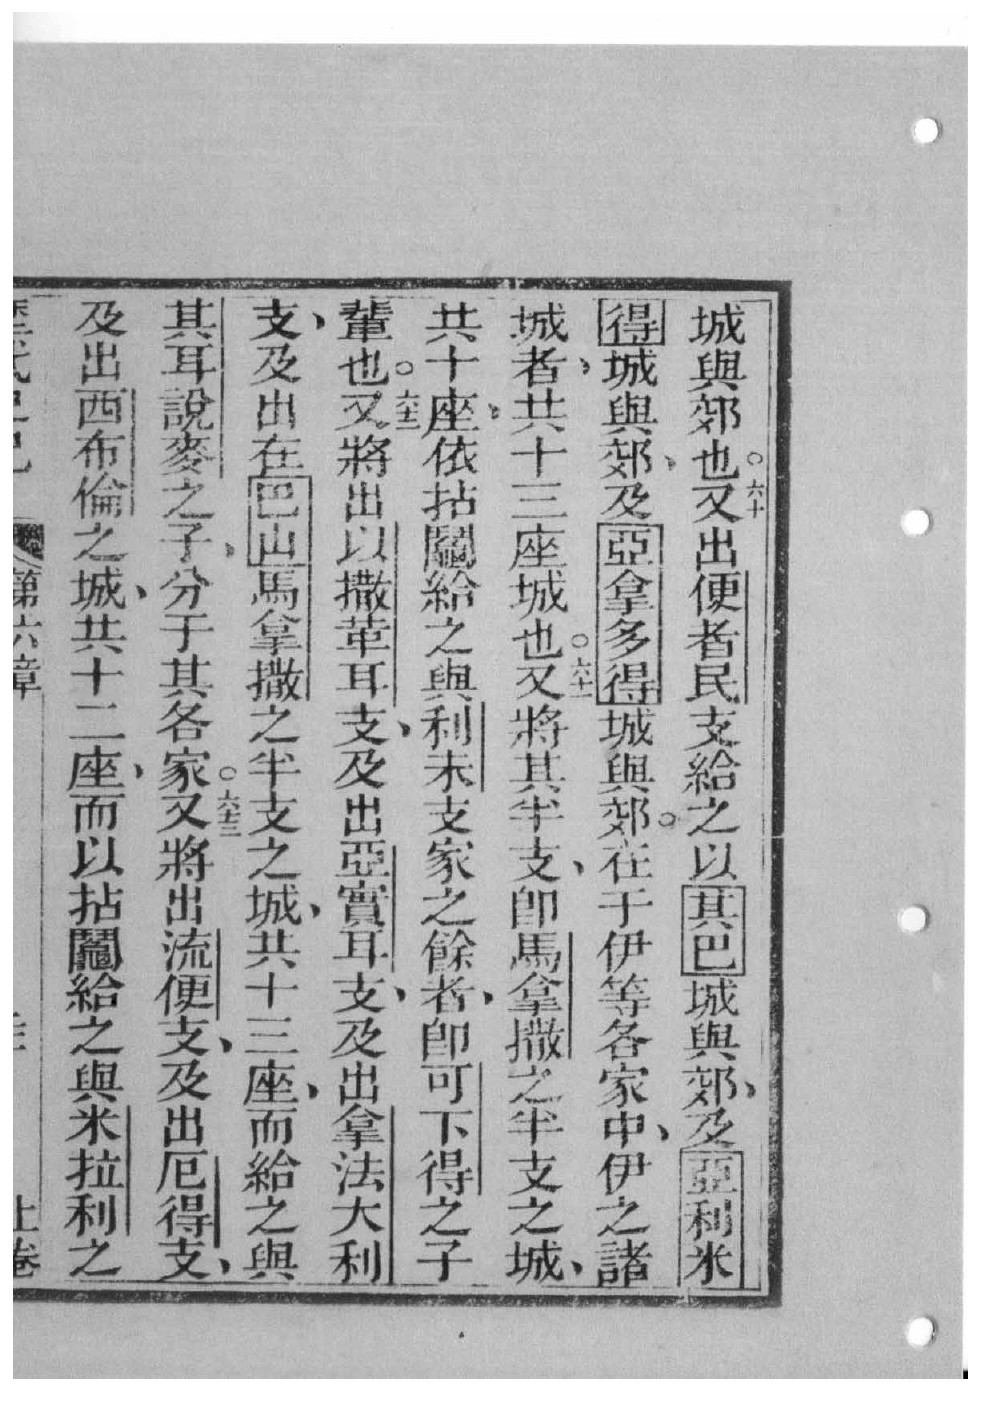 城與郊也。六十又出便者民支給之以其巴城與郊、及亞利米
得城與郊、及亞拿多得城與郊。在于伊等各家中、伊之諸
城者、共十三座城也。六十一又將其半支、卽馬拿撒之半支之城、
共十座、依拈鬮給之與利未支家之餘者、卽可下得之子
輩也。六十二又將出以撒革耳支、及出亞實耳支、及出拿法大利
支、及出在巴山馬拿撒之半支之城、共十三座、而給之與
其耳說麥之子、分于其各家。六十三又將出流便支、及出厄得支、
及出西布倫之城、共十二座、而以拈鬮給之與米拉利之
第六章 上卷